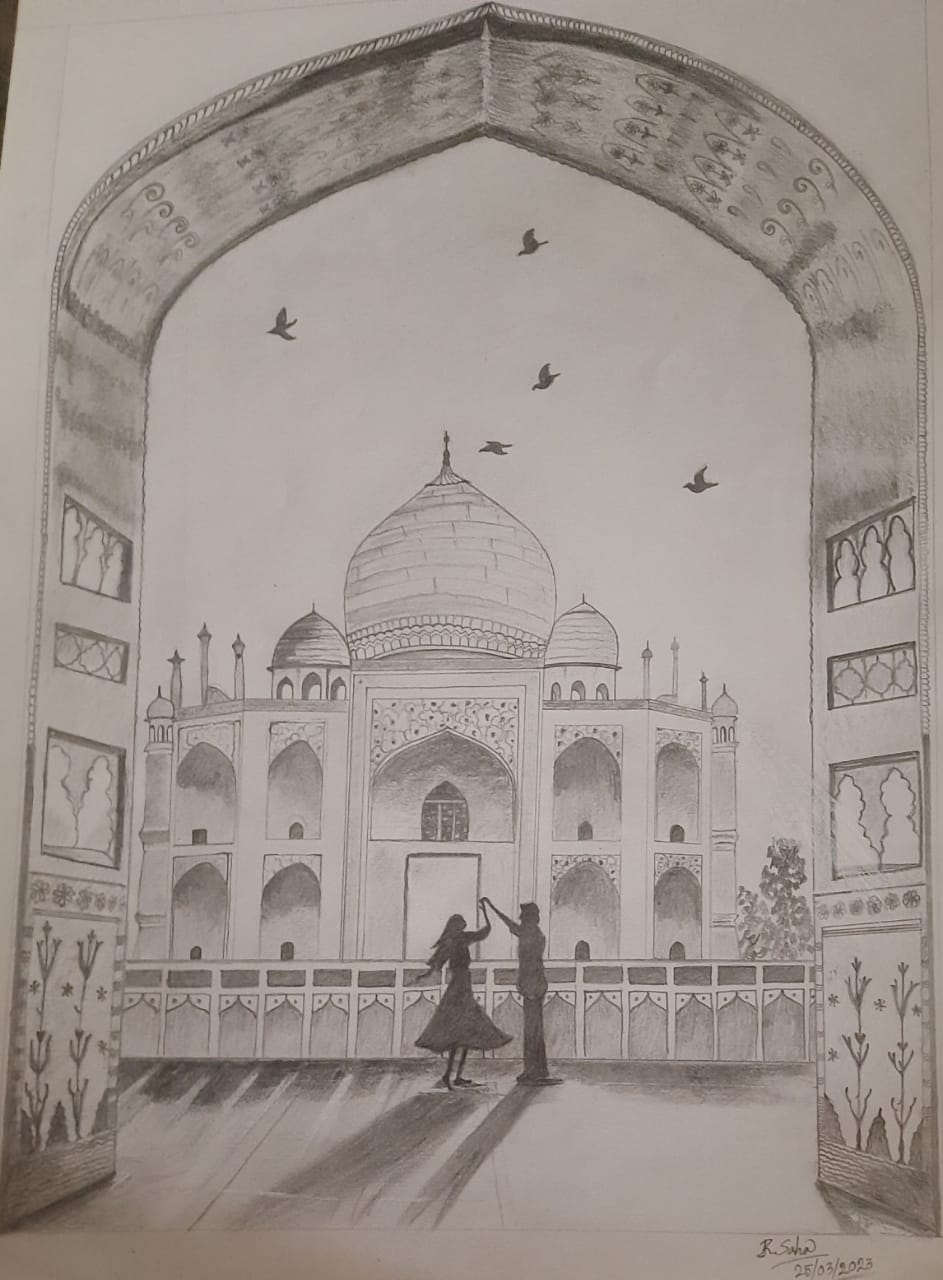 R. Saha
25/03/2023